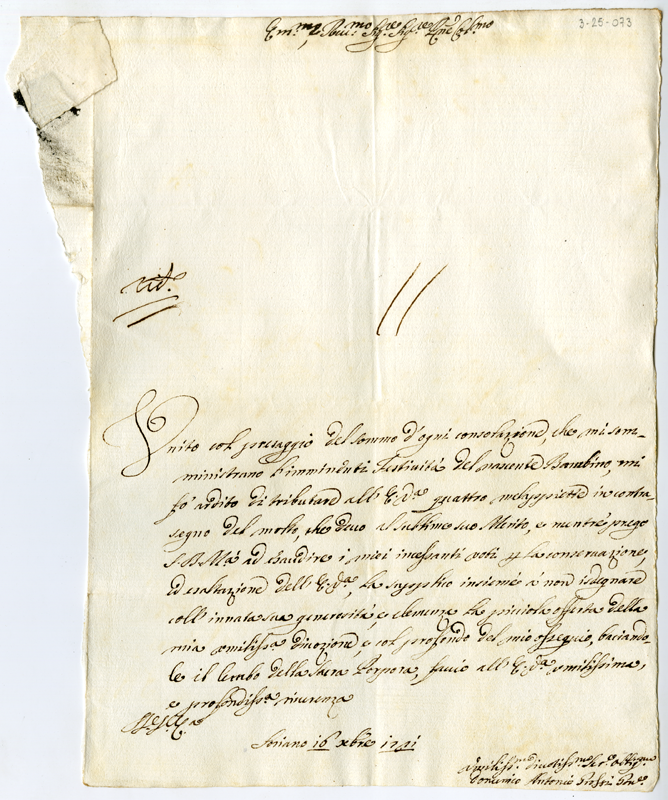 3-25-073
Em.mo e Rev.mo Sig.re Sig.re P.ne Col.mo
rid.
Unito col presaggio del sommo d'ogni consolazione, che mi som=
ministrano l'imminenti Festività del nascente Bambino, mi
fò ardito di tributare all' E.V.a quattro in contra=
segno del molto, che devo al sublime suo Merito, e mentre prego
S.D.M.à ad esaudire i miei incessanti voti p la conservazione,
ed esaltazione dell' E.V.a, la supplico insieme à non isdegnare
coll' innata sua generosità, e clemenza la picciola offerta della
mia umilissa divozione, e col profondo del mio ossequio, baciando=
le il lembo della Sacra Porpora, faccio all' E.V.a umilissima,
e profondissa riverenza
Soriano 16 xbre 1721
Umiliss.mo Divotiss.mo Ser.e Obblig.mo
Domenico Antonio